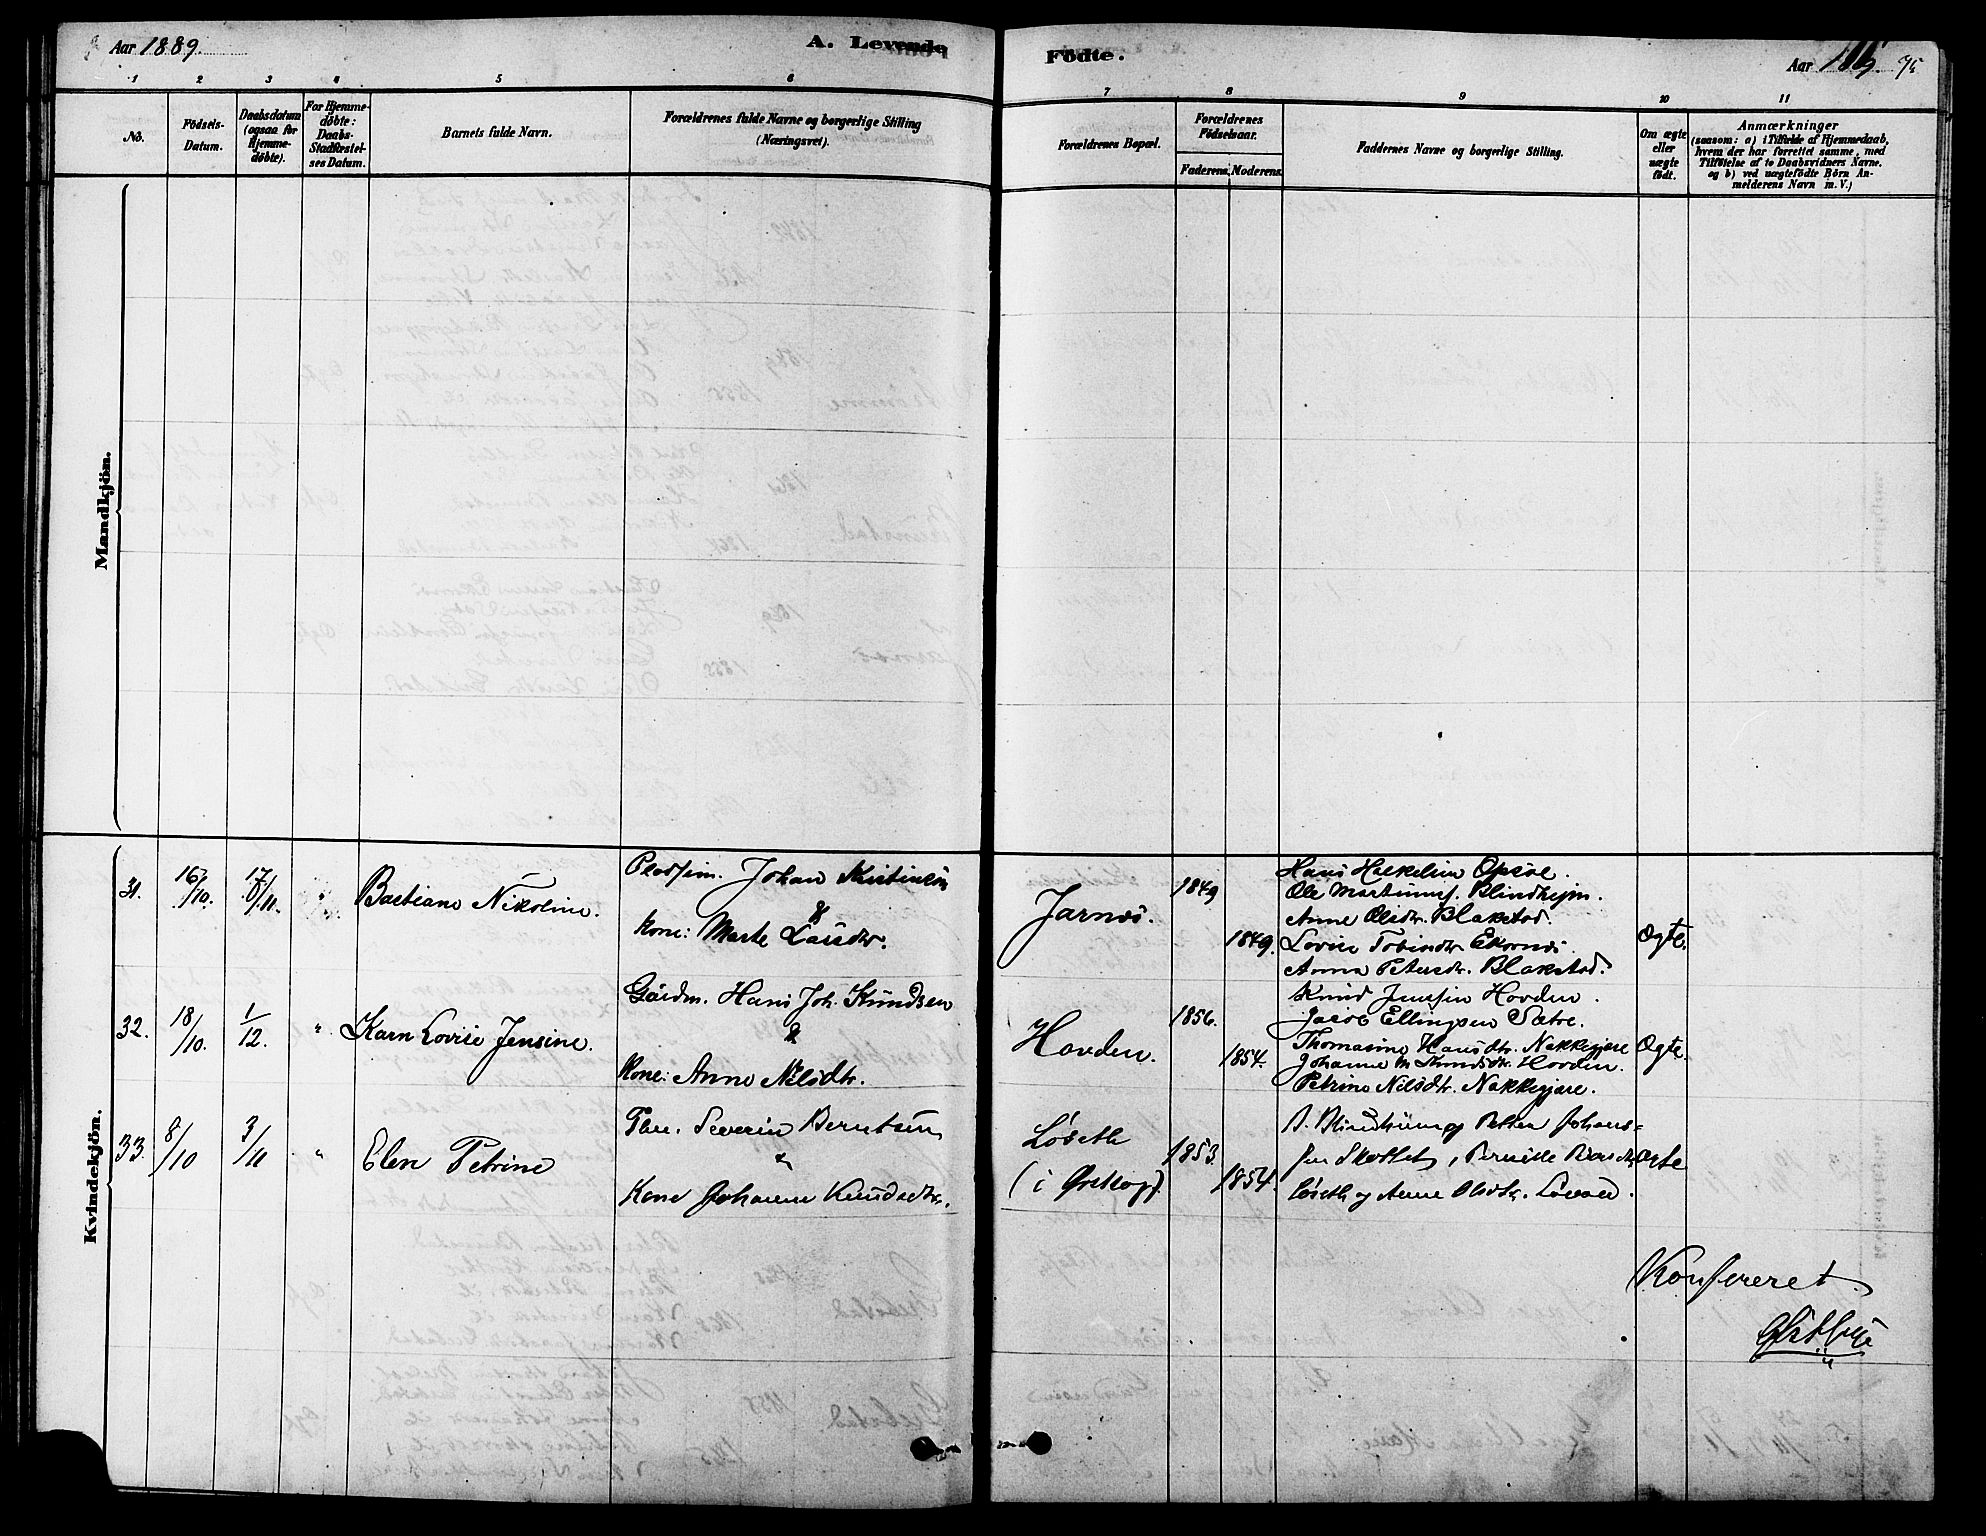 Aar 1889.
A. Levende
Födte.
Aar
1 2 3 4 5 6
7 8 9 10 11
No.
Födsels-
Datum.
Daabsdatum
(ogsaa for
Hjemme-
döbte).
For Hjemme-
döbte:
Daabs-
Stadfæstel-
ses Datum.
Barnets fulde Navn.
Forældrenes fulde Navne og borgerlige Stilling
(Næringsvei).
Forældrenes Bopæl.
Forældrenes
Födselsaar.
Faderens. Moderens.
Faddernes Navne og borgerlige Stilling.
Om ægte
eller
uægte
födt.
Anmærkninger
(saasom: a) i Tilfælde af Hjemmedaab,
hvem der har forrettet samme, med
Tilföielse af to Daabsvidners Navne.
og b) ved uægtefödte Börn An-
melderens Navn m. V.)
Mandkjön.
Kvindekjön.
31.
16/10.
17/11.
Bastiane Nikoline.
Johan
&
Kone: Marte Larsdtr.
Jarnes.
1849
1849.
Hans Opsøe.
Ole Martinus. Blindheim.
Anne Olsdtr. Blakstad.
Lovise Ekornes.
Anna Petersdtr. Blakstad.
Ægte.
32.
18/10.
1/12.
"
Karn Lovise Jensine.
Gårdm. Hans Joh. Knudsen
&
Kone: Anne Nilsdtr.
Hovden.
1856.
1854.
Knud Jensen Hovden.
Jacob Ellingsen Sætre.
Thomasine Hansdtr. Nakkegjære
Johanne M. Knudsdtr. Hovden.
Petrine Nilsdtr. Nakkegjære.
Ægte.
33.
8/10
3/11
"
Elen Petrine
Severin Berntsen
&
Kone Johanne Knudsdtr.
Løseth
(i Ørskog).
1853.
1854.
Petter Johans-
sen Pernille
Løseth og Anne Olsdtr.
Ægte
Konfereret